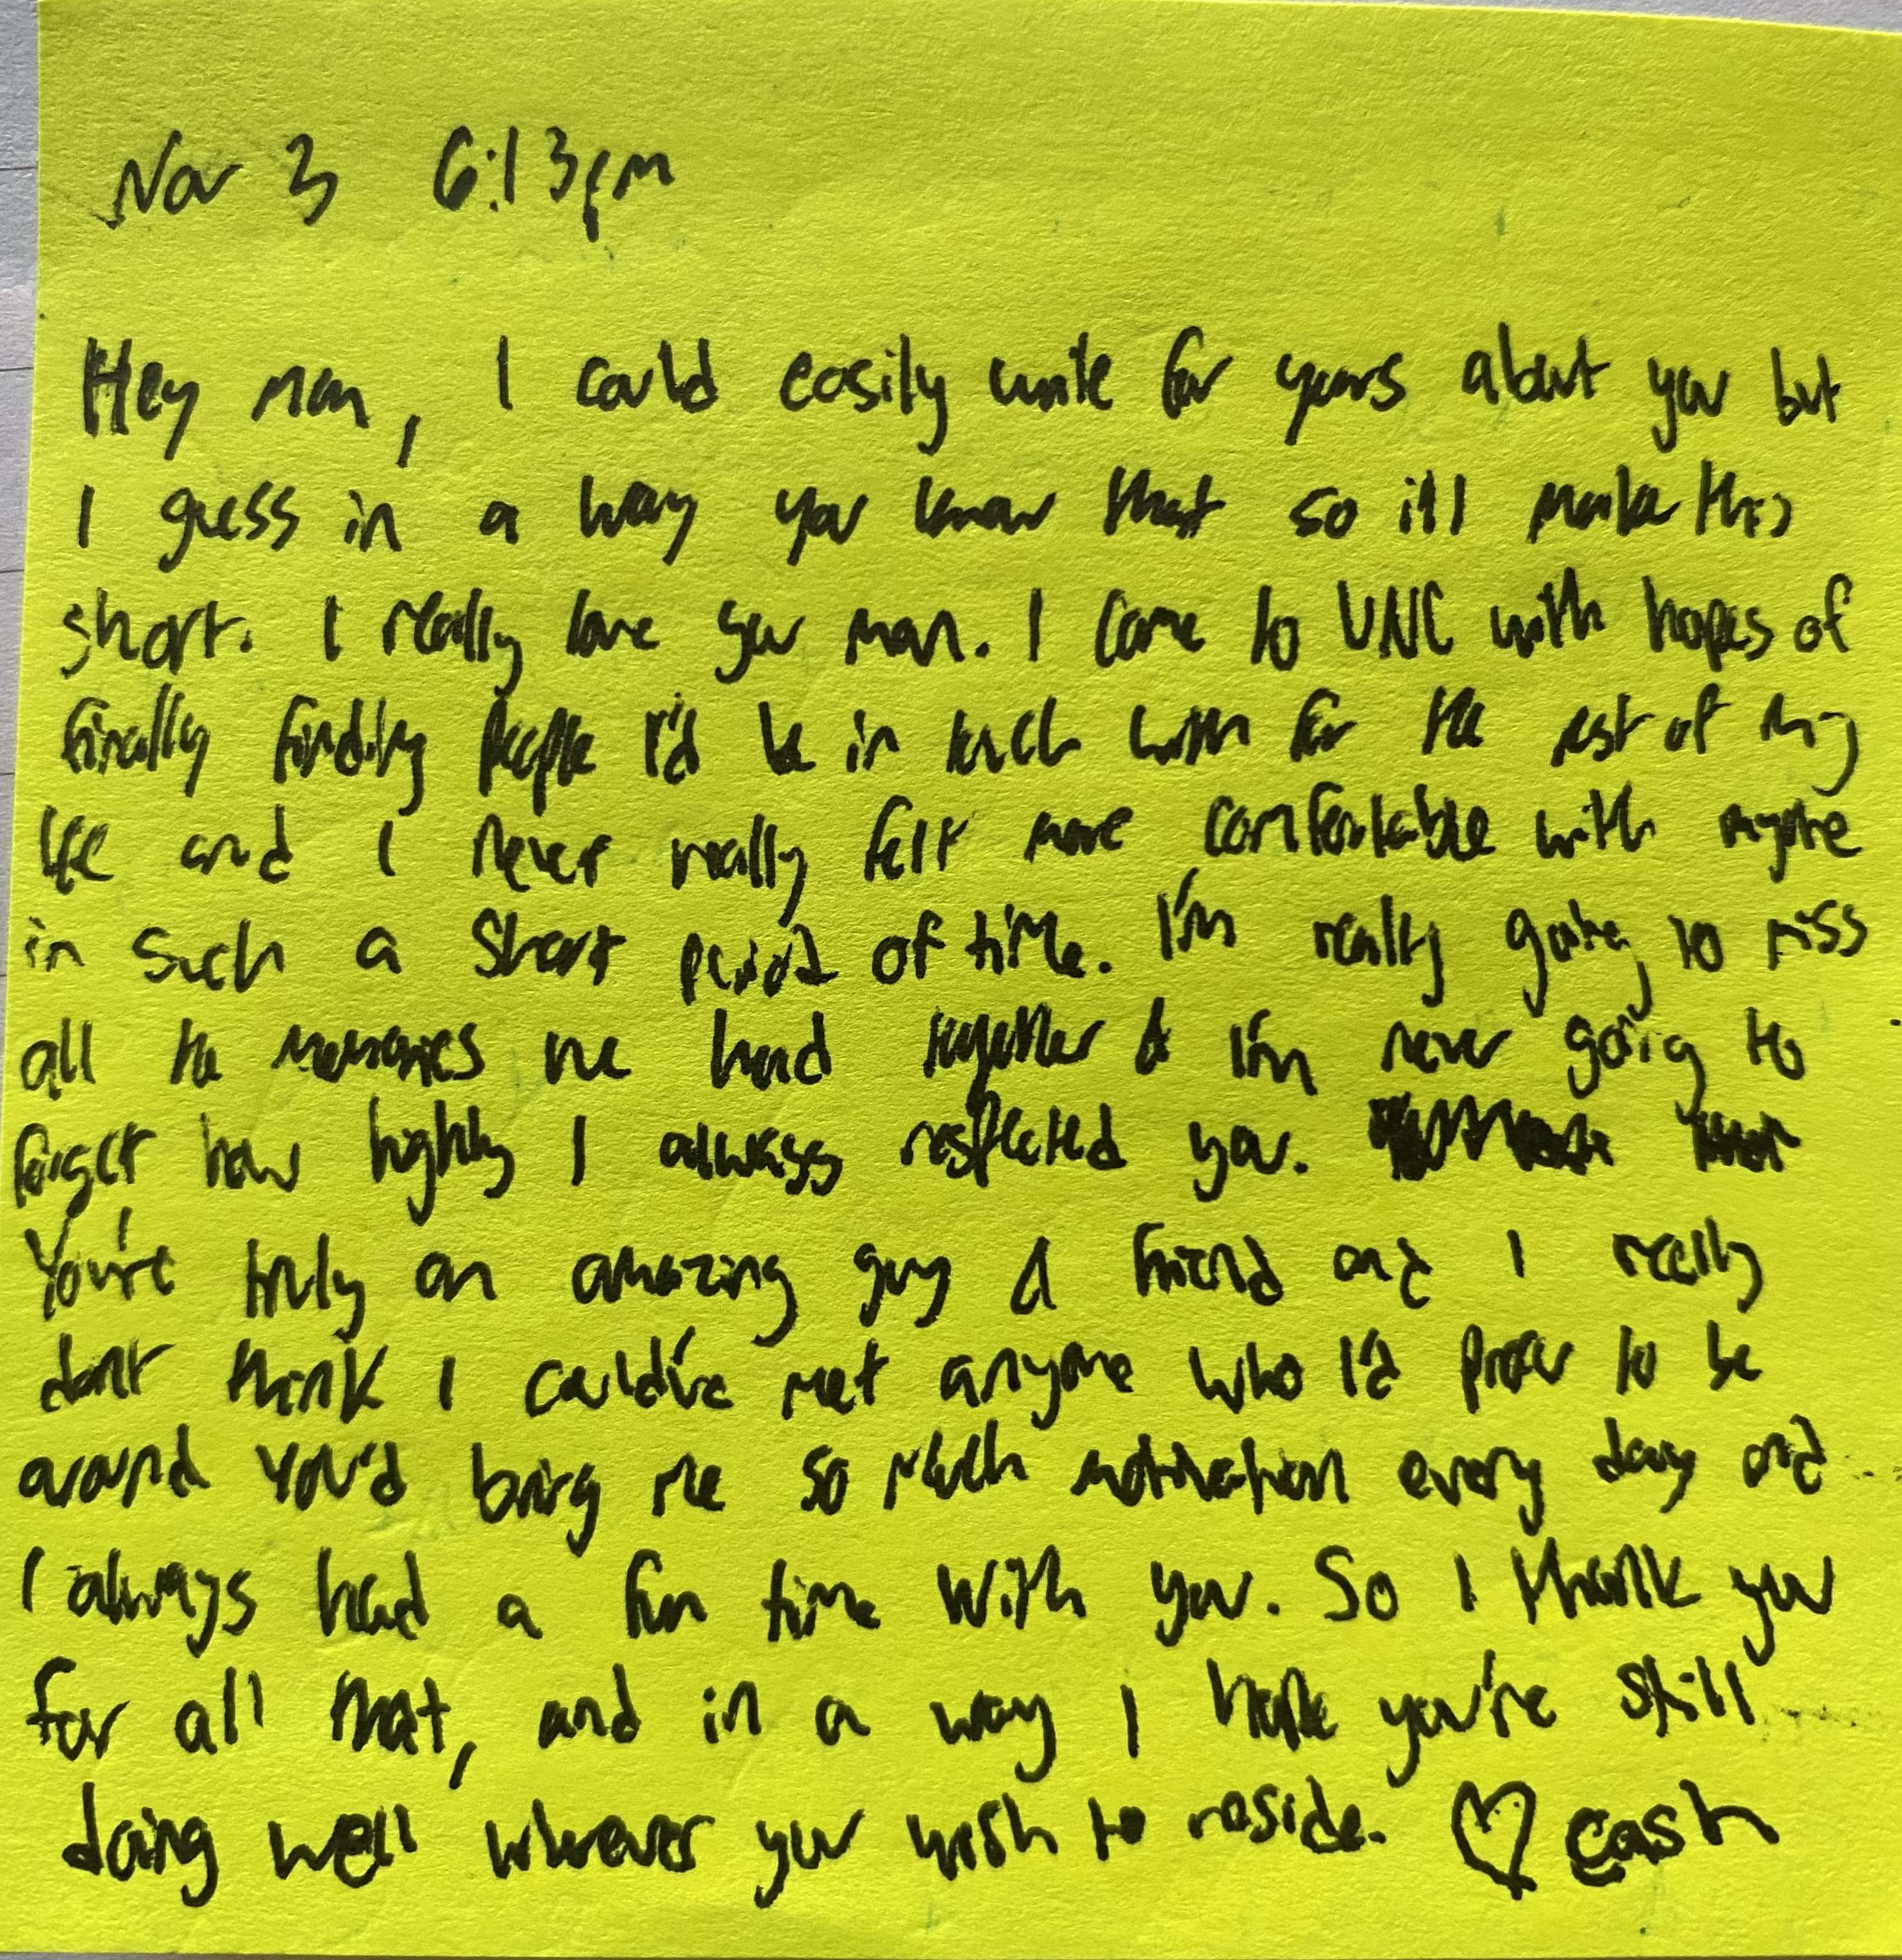 Nov 3 6:13pm
Hey man, I could easily write for years about you but
I guess in a way you know that so ill make this
short. I really love you man. I came to UNC with hopes of
finally finding people I'd be in touch with for the rest of my
life and I never really felt more comfortable with anyone
in such a short period of time. I'm really going to miss
all the memories we had together & I'm never going to
forget how highly I always respected you.
You're truly an amazing guy & friend and I really
dont think I could've met anyone who I'd prefer to be
around you'd bring me so much motivation every day and
I always had a fun time with you. So I thank you
for all that, and in a way I hope you're still
doing well wherever you wish to reside. ♡ cash